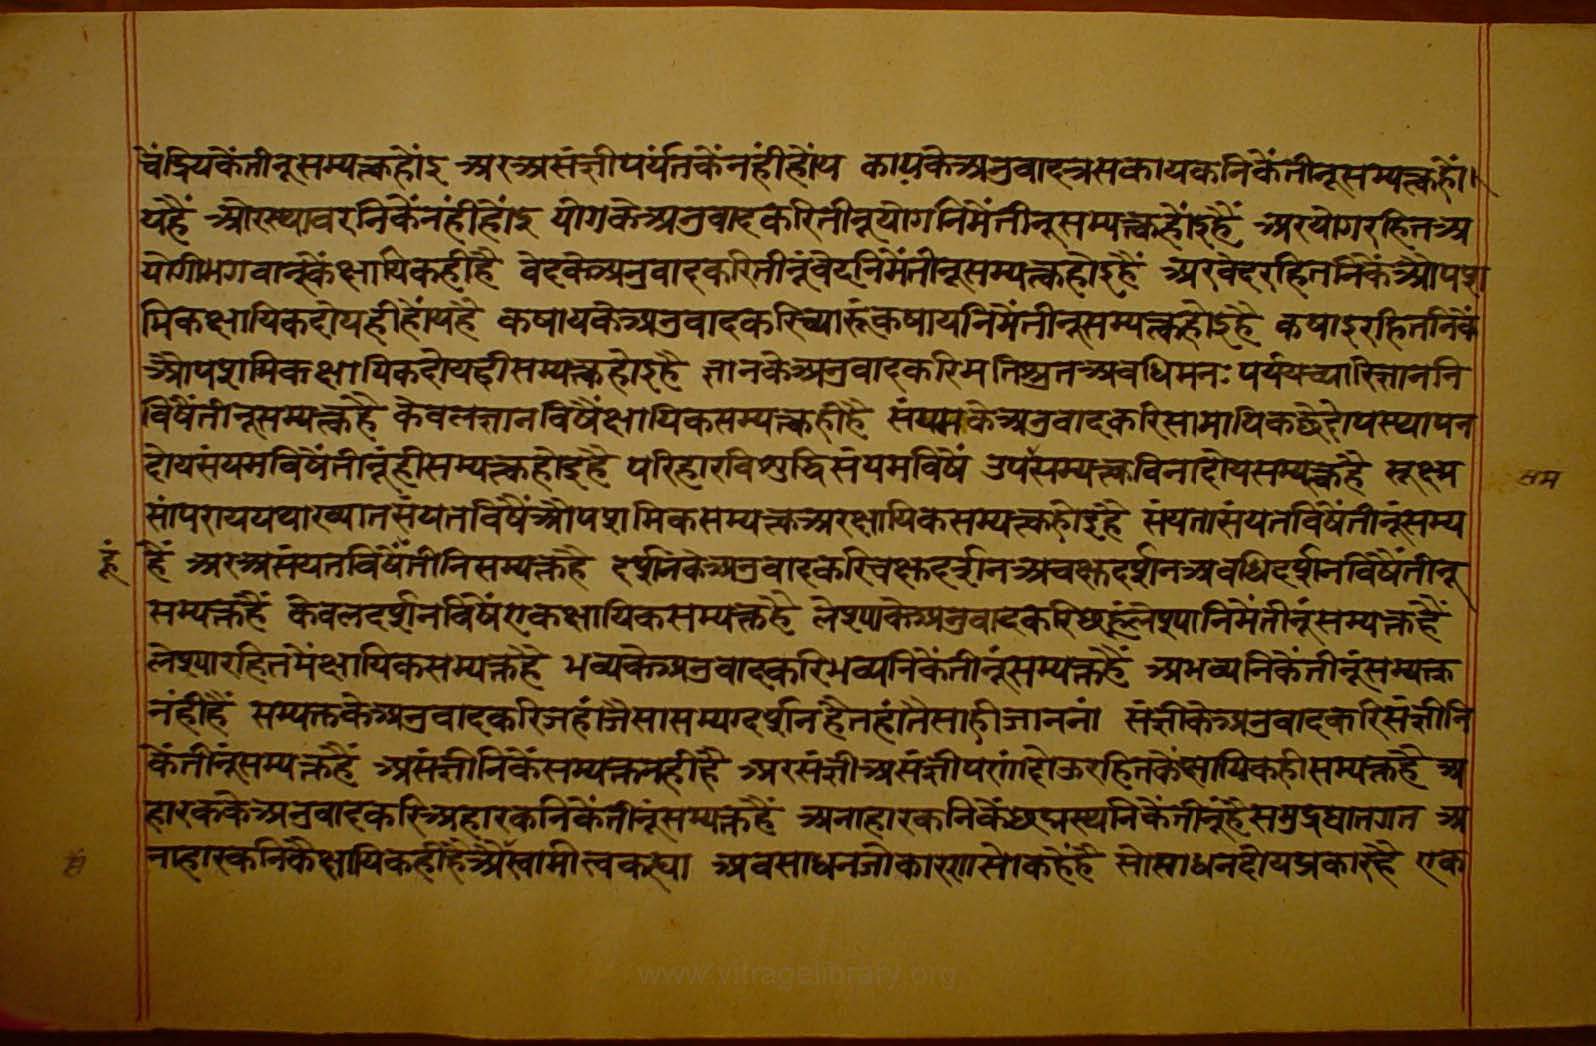 चेंद्रियकेंतीनूसम्यत्त्कहोंइ अरअसंज्ञीपर्यंतकेंनंहींहोंय कायकेअनुवादत्रसकायकनिकेंतीनूसम्यत्त्कहों।
यहैं ओरस्थावरनिकेंनंहींहोंइ योगकेअनुवादकरितीनूयोगनिमेंतीनूसम्यत्त्कहोंइहैं अरयोगरहितअ
योगीभगवानूकेंक्षायिकहींहै वेदकेअनुवादकरितीनूंवेदनिमेंतीनूसम्यत्त्कहोइहैं अरवेदरहितनिकेंओपश
मिकक्षायिकदोयहीहोंयहै कषायकेअनुवादकरिच्यारूंकषायनिमेंतीनूसम्यत्त्कहोइहै कषाइरहितनिकें
औपशमिकक्षायिकदोयहीसम्यत्त्कहोइहै ज्ञानकेअनुवादकरिमतिश्रुतअवधिमनःपर्ययच्यारिज्ञाननि
विषैंतीनूसम्यत्त्कहै केवलज्ञानविषैंक्षायिकसम्यत्त्कहीहै संयमकेअनुवादकरिसामायिकछेदोपस्थापन
दोयसंयमविषेंतीनूंहीसम्यत्त्कहोइहै परिहारविशुद्धिसंयमविषें उपसम्यत्त्कविनादोयसम्यत्त्कहै सूक्ष्म
शम
सांपराययथाख्यातसंयतविषैंऔपशमिकसम्यत्त्कअरक्षायिकसम्यत्त्कहोइहै संयतासंयतविषेंतीनूंसम्य
हूं हैं अरअसंयतविषेंतीनिसम्यत्त्कहै दर्शनकेअनुवादकरिचक्षुदर्शनअचक्षुदर्शनअवधिदर्शनविषैंतीनू
सम्यत्त्कहैं केवलदर्शनविषेंएकक्षायिकसम्यत्त्कहै लेश्याकेअनुवादकरिछहूंलेश्यानिमेंतीनूंसम्यत्त्कहैं
लेश्यारहितमेंक्षायिकसम्यत्त्कहै भव्यकेअनुवादकरिभव्यनिकेंतीनूंसम्यत्त्कहैं अभव्यनिकेंतीनूंसम्यत्त्क
नंहींहैं सम्यत्त्ककेअनुवादकरिजहांजैसासम्यग्दर्शनहैतहांतैसाहीजाननां संज्ञीकेअनुवादकरिसंज्ञीनि
केंतीनूंसम्यत्त्कहैं असंज्ञीनिकेंसम्यत्त्कनहींहै अरसंज्ञीअसंज्ञीपणांदोऊरहितकेंक्षायिकहीसम्यत्त्कहै अ
हारककेअनुवादकरिअहारकनिकेंतीनूंसम्यत्त्कहैं अनाहारकनिकेंछद्मस्थनिकेंतीनूंहैसमुद्घातगत अ
नाहारकनिकैक्षायिकहीहैऔसैंस्वामीत्वकह्या अवसाधनजोकारणसोकहेंहै सोसाधनदोयप्रकारहै एक
www.vitragelibrary.org